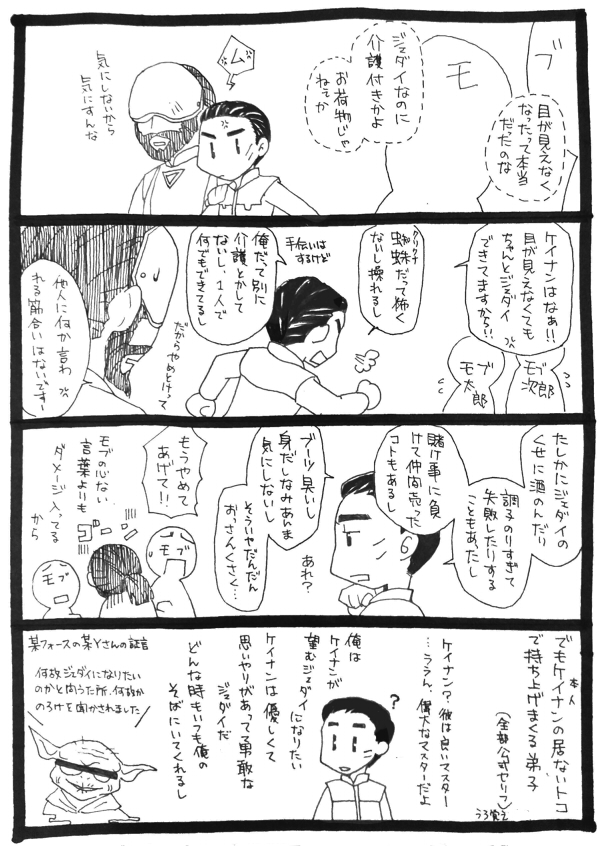 ブ
モ
目が見えなく
なったって本当
だったのな
ジェダイなのに
介護付きかよ
お荷物じゃ
ねえか
ム
気にしないから
気にすんな
ケイナンはなぁ!!
目が見えなくても
ちゃんとジェダイ
できてますから!!
モブ
次郎
モブ
太郎
クリクナ
蜘蛛だって怖く
ないし操れるし
手伝いは
するけど
俺だって別に
介護とかして
ないし、1人で
何でもできてるし
だからやめとけって
他人に何か言わ
れる筋合いはないですー
たしかにジェダイの
くせに酒のんだり
調子のりすぎて
失敗したりする
こともあったし
賭け事に負
けて仲間売った
コトもあるし
ブーツ臭いし
身だしなみあんま
気にしないし
そういやだんだん
おっさんくさく…
あれ?
もうやめて
あげて!!
モブ
ゴーン
モブの心ない
言葉よりも
ダメージ入ってる
から
モブ
でもケイナン本人の居ないトコ
で持ち上げまくる弟子
(全部公式セリフ)
うろ覚え
ケイナン?彼は良いマスター
…ううん、偉大なマスターだよ
?
俺は
ケイナンが
望むジェダイになりたい
ケイナンは優しくて
思いやりがあって勇敢な
ジェダイだ
どんな時もいつも俺の
そばにいてくれるし
某フォースの某Yさんの証言
何故ジェダイになりたい
のかと問うた所、何故か
のろけを聞かされました